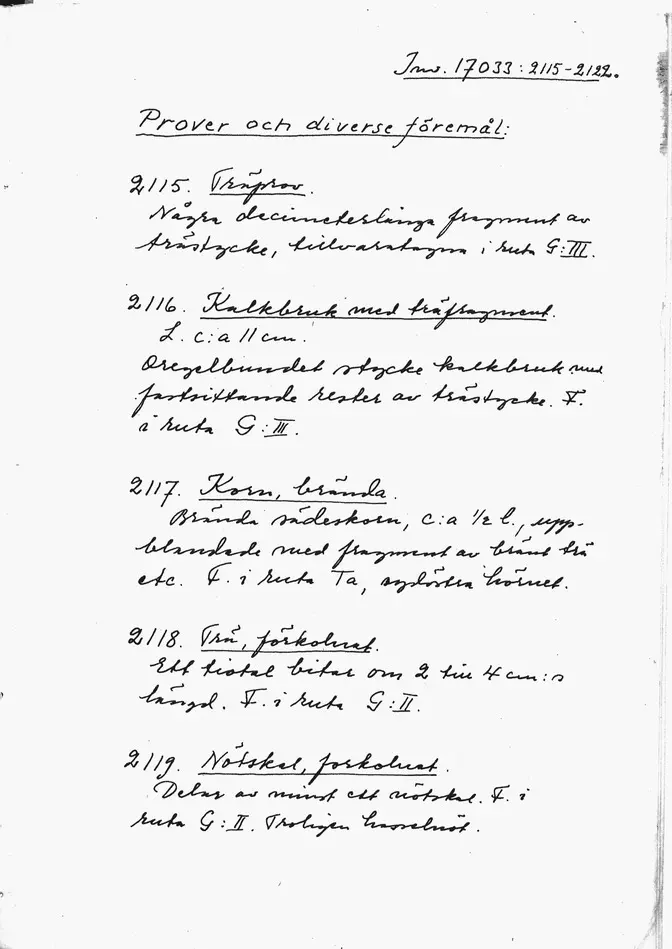 Inv. 17033:2115-2122.
Prover och diverse föremål:
2115. Träprov.
Några decimeterlånga fragment av
trästycke, tillvaratagna i ruta G:III.
2116. Kalkbruk med träfragment.
L. c:a 11 cm.
Oregelbundet stycke kalkbruk med
fastsittande rester av trästycke. F.
i ruta G:III.
2117. Korn, brända.
Brända sädeskorn, c:a 1/2 l., upp-
blandade med fragment av bränt trä
etc. F. i ruta Ta, sydöstra hörnet.
2118. Trä, förkolnat.
Ett tiotal bitar om 2 till 4 cm:s
längd. F. i ruta G:II.
2119. Nötskal, förkolnat.
Delar av minst ett nötskal. F. i
ruta G:II. Troligen hasselnöt.